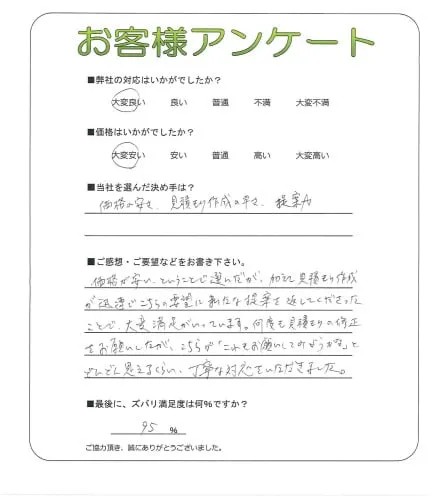 お客様アンケート
■弊社の対応はいかがでしたか？
大変良い 良い 普通 不満 大変不満
■価格はいかがでしたか？
大変安い 安い 普通 高い 大変高い
■当社を選んだ決め手は？
価格の安さ、見積もり作成の早さ、提案力
■ご感想・ご要望などをお書き下さい。
価格が安い、ということで選んだが、加えて見積もり作成
が迅速でこちらの要望に新たな提案を返してくださった
ことで、大変満足がいっています。何度も見積もりの修正
をお願いしたが、こちらが「これもお願いしてのがうかな」と
どんどん思えるくらい、丁寧な対応をいただきました。
■最後に、ズバリ満足度は何％ですか？
95 ％
ご協力頂き、誠にありがとうございました。